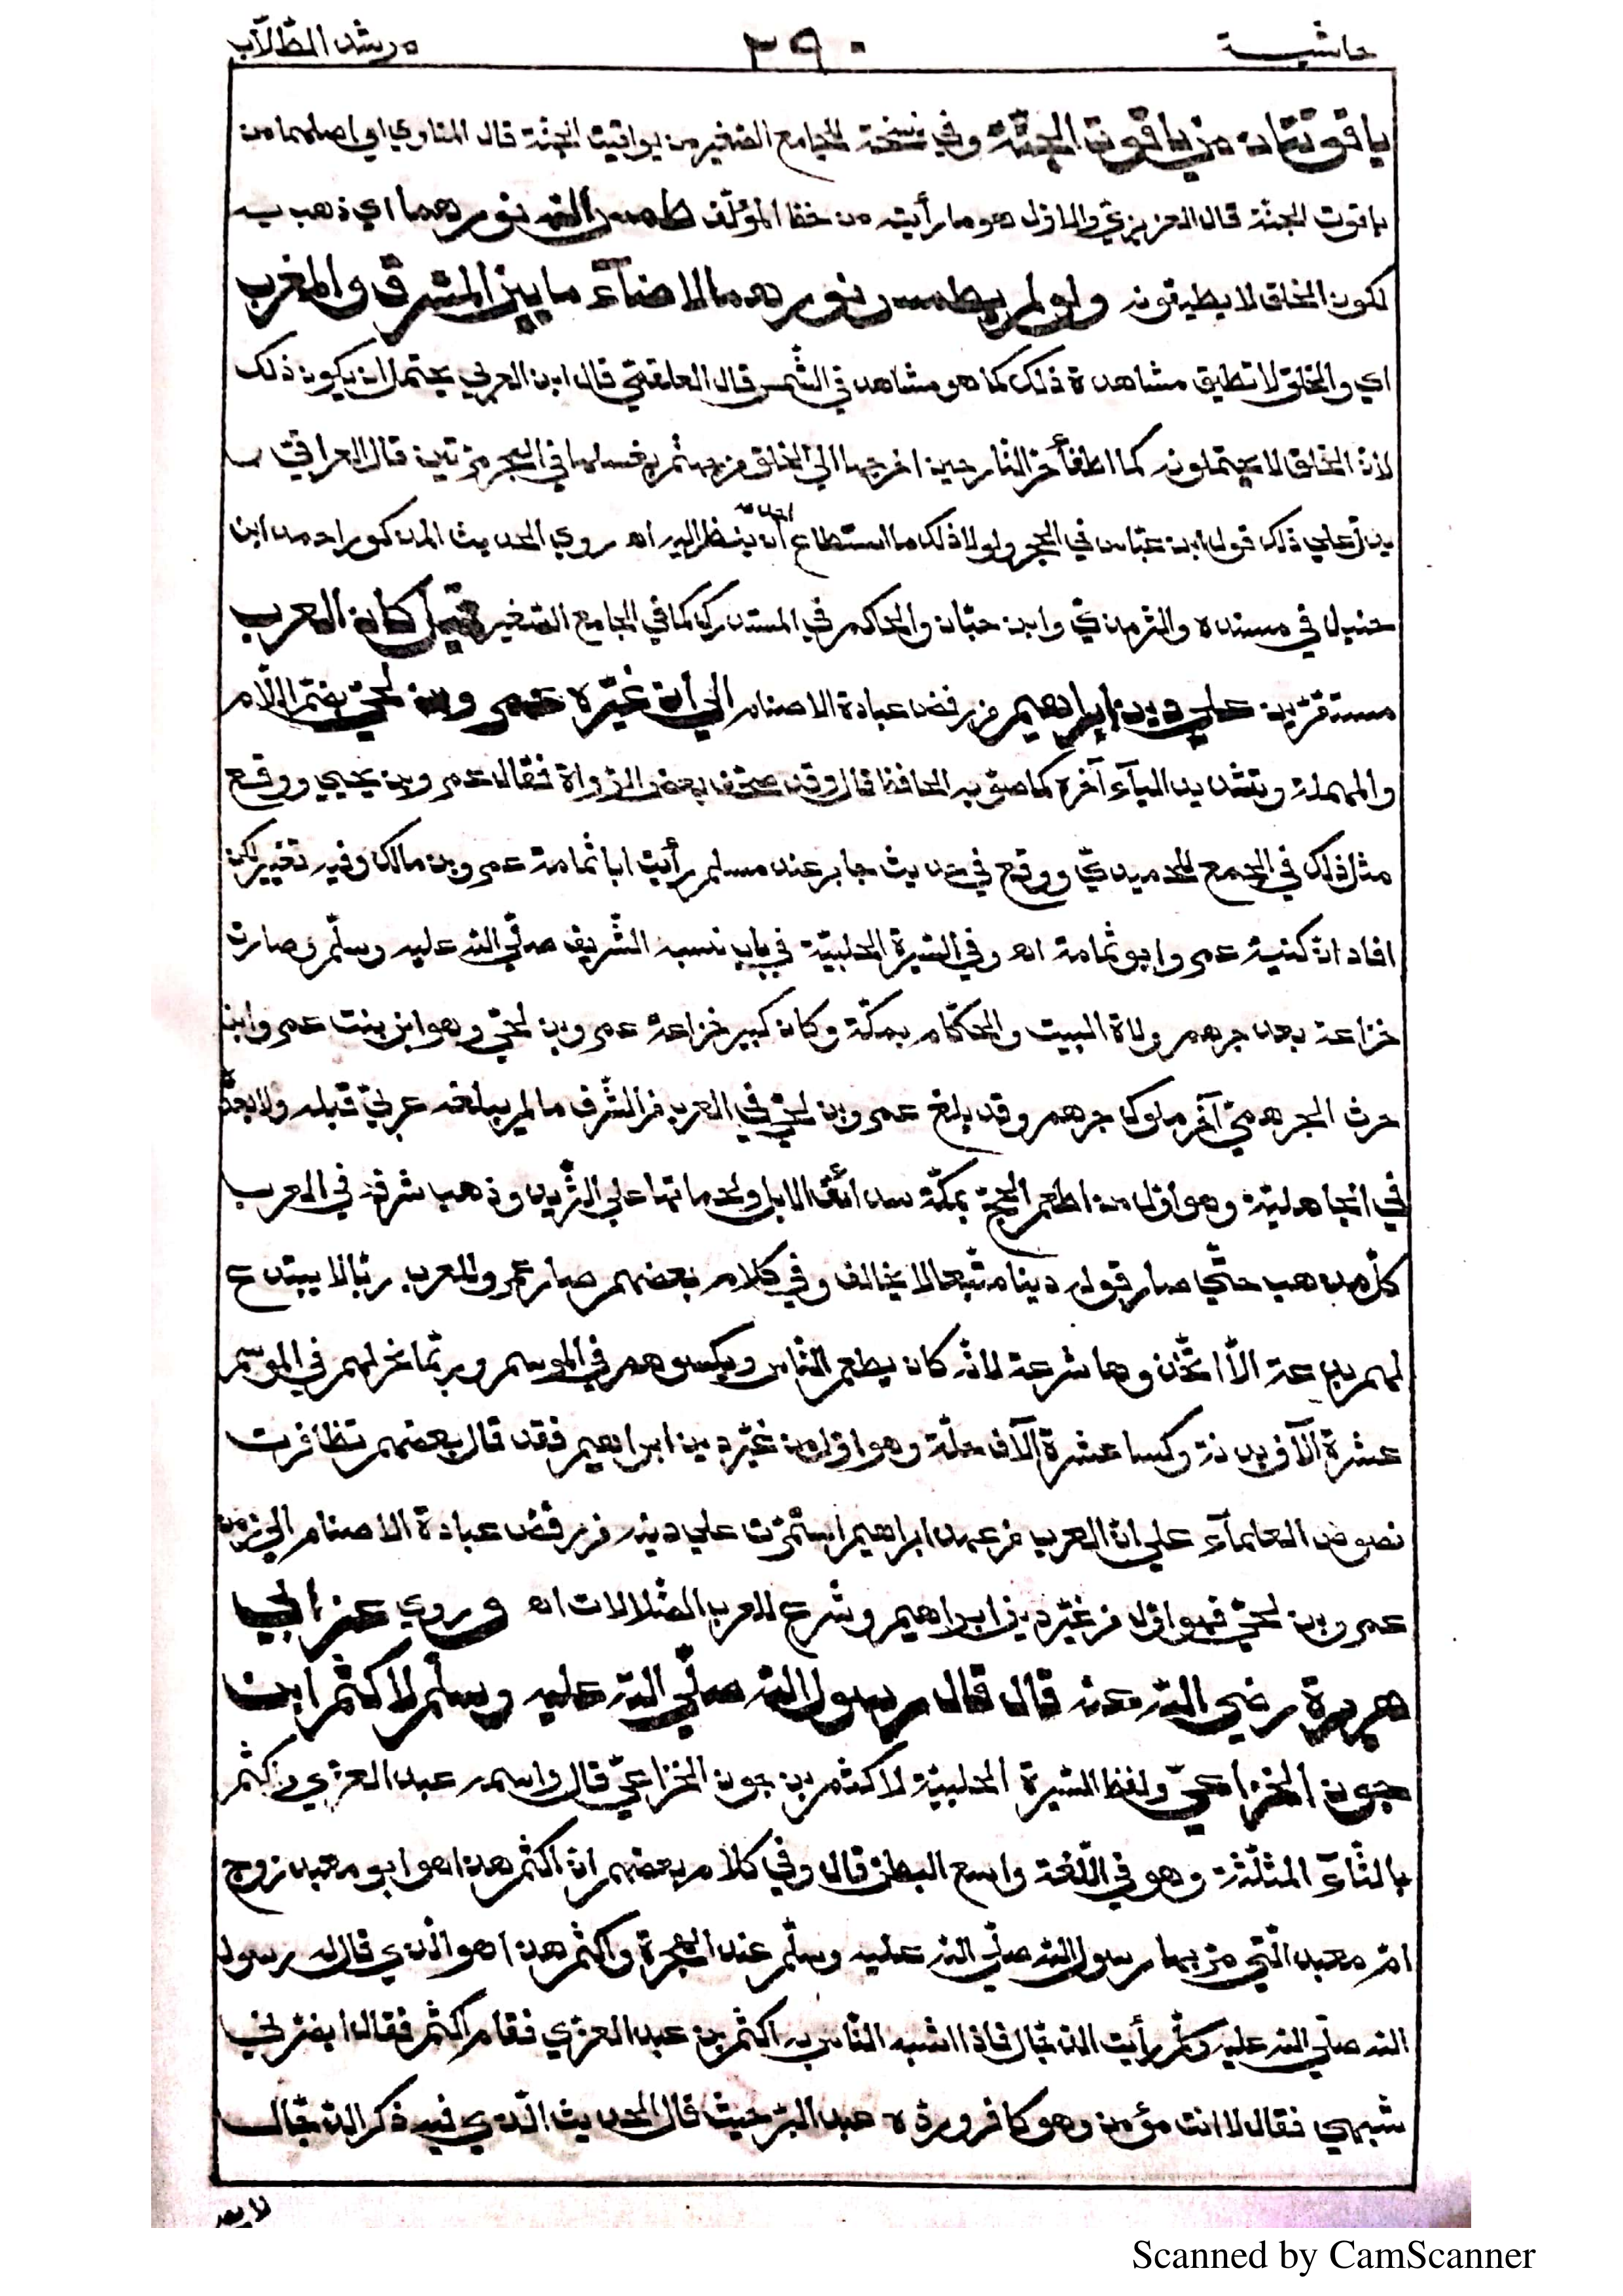 حاشية ٣٩٠ مرشد الطلّاب
ياقوتتان من ياقوت الجنّة وفي نسخة للجامع الصّغير من يواقيت الجنّة قال المناوي اي اصلهما من
ياقوت الجنّة قال العزيزيّ والاوّل هو ما رأيته من خطّ المؤلّف طمس الله نورهما اي ذهب به
لكون الخلق لا يطيقونه ولو لم يطمس نورهما لاضآء ما بين المشرق والمغرب
اي والخلق لا تطيق مشاهدة ذلك كما هو مشاهد في الشّمس قال العلقميّ قال ابن العربي يحتمل ان يكون ذلك
لانّ الخلق لا يحتملونه كما اطفأ حرّ النّار حين اخرجها الى الخلق من جهنّم بغسلها في البحر مرّتين قال العراقيّ
يدلّ على ذلك قول ابن عبّاس في الحجر ولولا ذلك ما استطاع احد ان ينظر اليه اه روي الحديث المذكور احمد ابن
حنبل في مسنده والترمذيّ وابن حبّان والحاكم في المستدرك كما في الجامع الصّغير قيل كان العرب
مستقرّين على دين ابراهيم من رفض عبادة الاصنام الى أن غيّره عمرو بن لحيّ بضمّ اللّام
والمهملة وتشديد اليآء آخره كما صوّبه الحافظ قال وقد صحّف بعض الرّواة فقال عمرو بن يحيي ووقع
مثل ذلك في الجمع للحميديّ ووقع في حديث جابر عند مسلم رأيت ابا ثمامة عمرو بن مالك وفيه تغيير لكن
افاد انّ كنية عمرو ابو ثمامة اه وفي السّيرة الحلبيّة في باب نسبه الشّريف صلّى الله عليه وسلّم وصارت
خزاعة بعد جرهم ولاة البيت والحكّام بمكّة وكان كبير خزاعة عمرو بن لحيّ وهو ابن بنت عمرو ابن
حرث الجرهميّ آخر ملوك جرهم وقد بلغ عمرو بن لحيّ في العرب من الشّرف ما لم يبلغه عربيّ قبله ولا بعدُ
في الجاهليّة وهو اوّل من اطعم الحجّ بمكّة سدائف الابل ولحمانها على الثّريد وذهب شرفه في العرب
كلّ مذهب حتّى صار قوله دينا متّبعا لا يخالف وفي كلام بعضهم صار عمرو للعرب ربّا لا يبتدع
لهم بدعة الّا اتّخذوها شرعة لانّه كان يطعم النّاس ويكسوهم في الموسم وربّما نحر لهم في الموسم
عشرة آلآف بدنة وكسا عشرة آلآف حلّة وهو اوّل من غيّر دين ابراهيم فقد قال بعضهم تظافرت
نصوص العلمآء على انّ العرب من عهد ابراهيم استمرّت على دينه من رفض عبادة الاصنام الى زمن
عمرو بن لحيّ فهو اوّل من غيّر دين ابراهيم وشرع للعرب الضّلالات اه وروي عن ابي
هريرة رضي الله عنه قال قال رسول الله صلّى الله عليه وسلّم لاكثم ابن
جون الخزاعيّ ولفظ السّيرة الحلبيّة لاكثم بن جون الخزاعيّ قال واسمه عبد العزّي واكثم
بالثّآء المثلّثة وهو في اللّغة واسع البطن قال وفي كلام بعضهم انّ اكثم هذا هو ابو معبد زوج
امّ معبد الّتي مرّ بها رسول الله صلّى الله عليه وسلّم عند الهجرة واكثم هذا هو الّذي قال له رسول
الله صلّى الله عليه وسلّم رأيت الدّجّال فاذا اشبه النّاس به اكثم بن عبد العزّي فقام اكثم فقال ايضرّني
شبهي فقال لا انت مؤمن وهو كافر وردّه عبد البرّ حيث قال الحديث الّذي فيه ذكر الدّجّال
لا يصح
Scanned by CamScanner